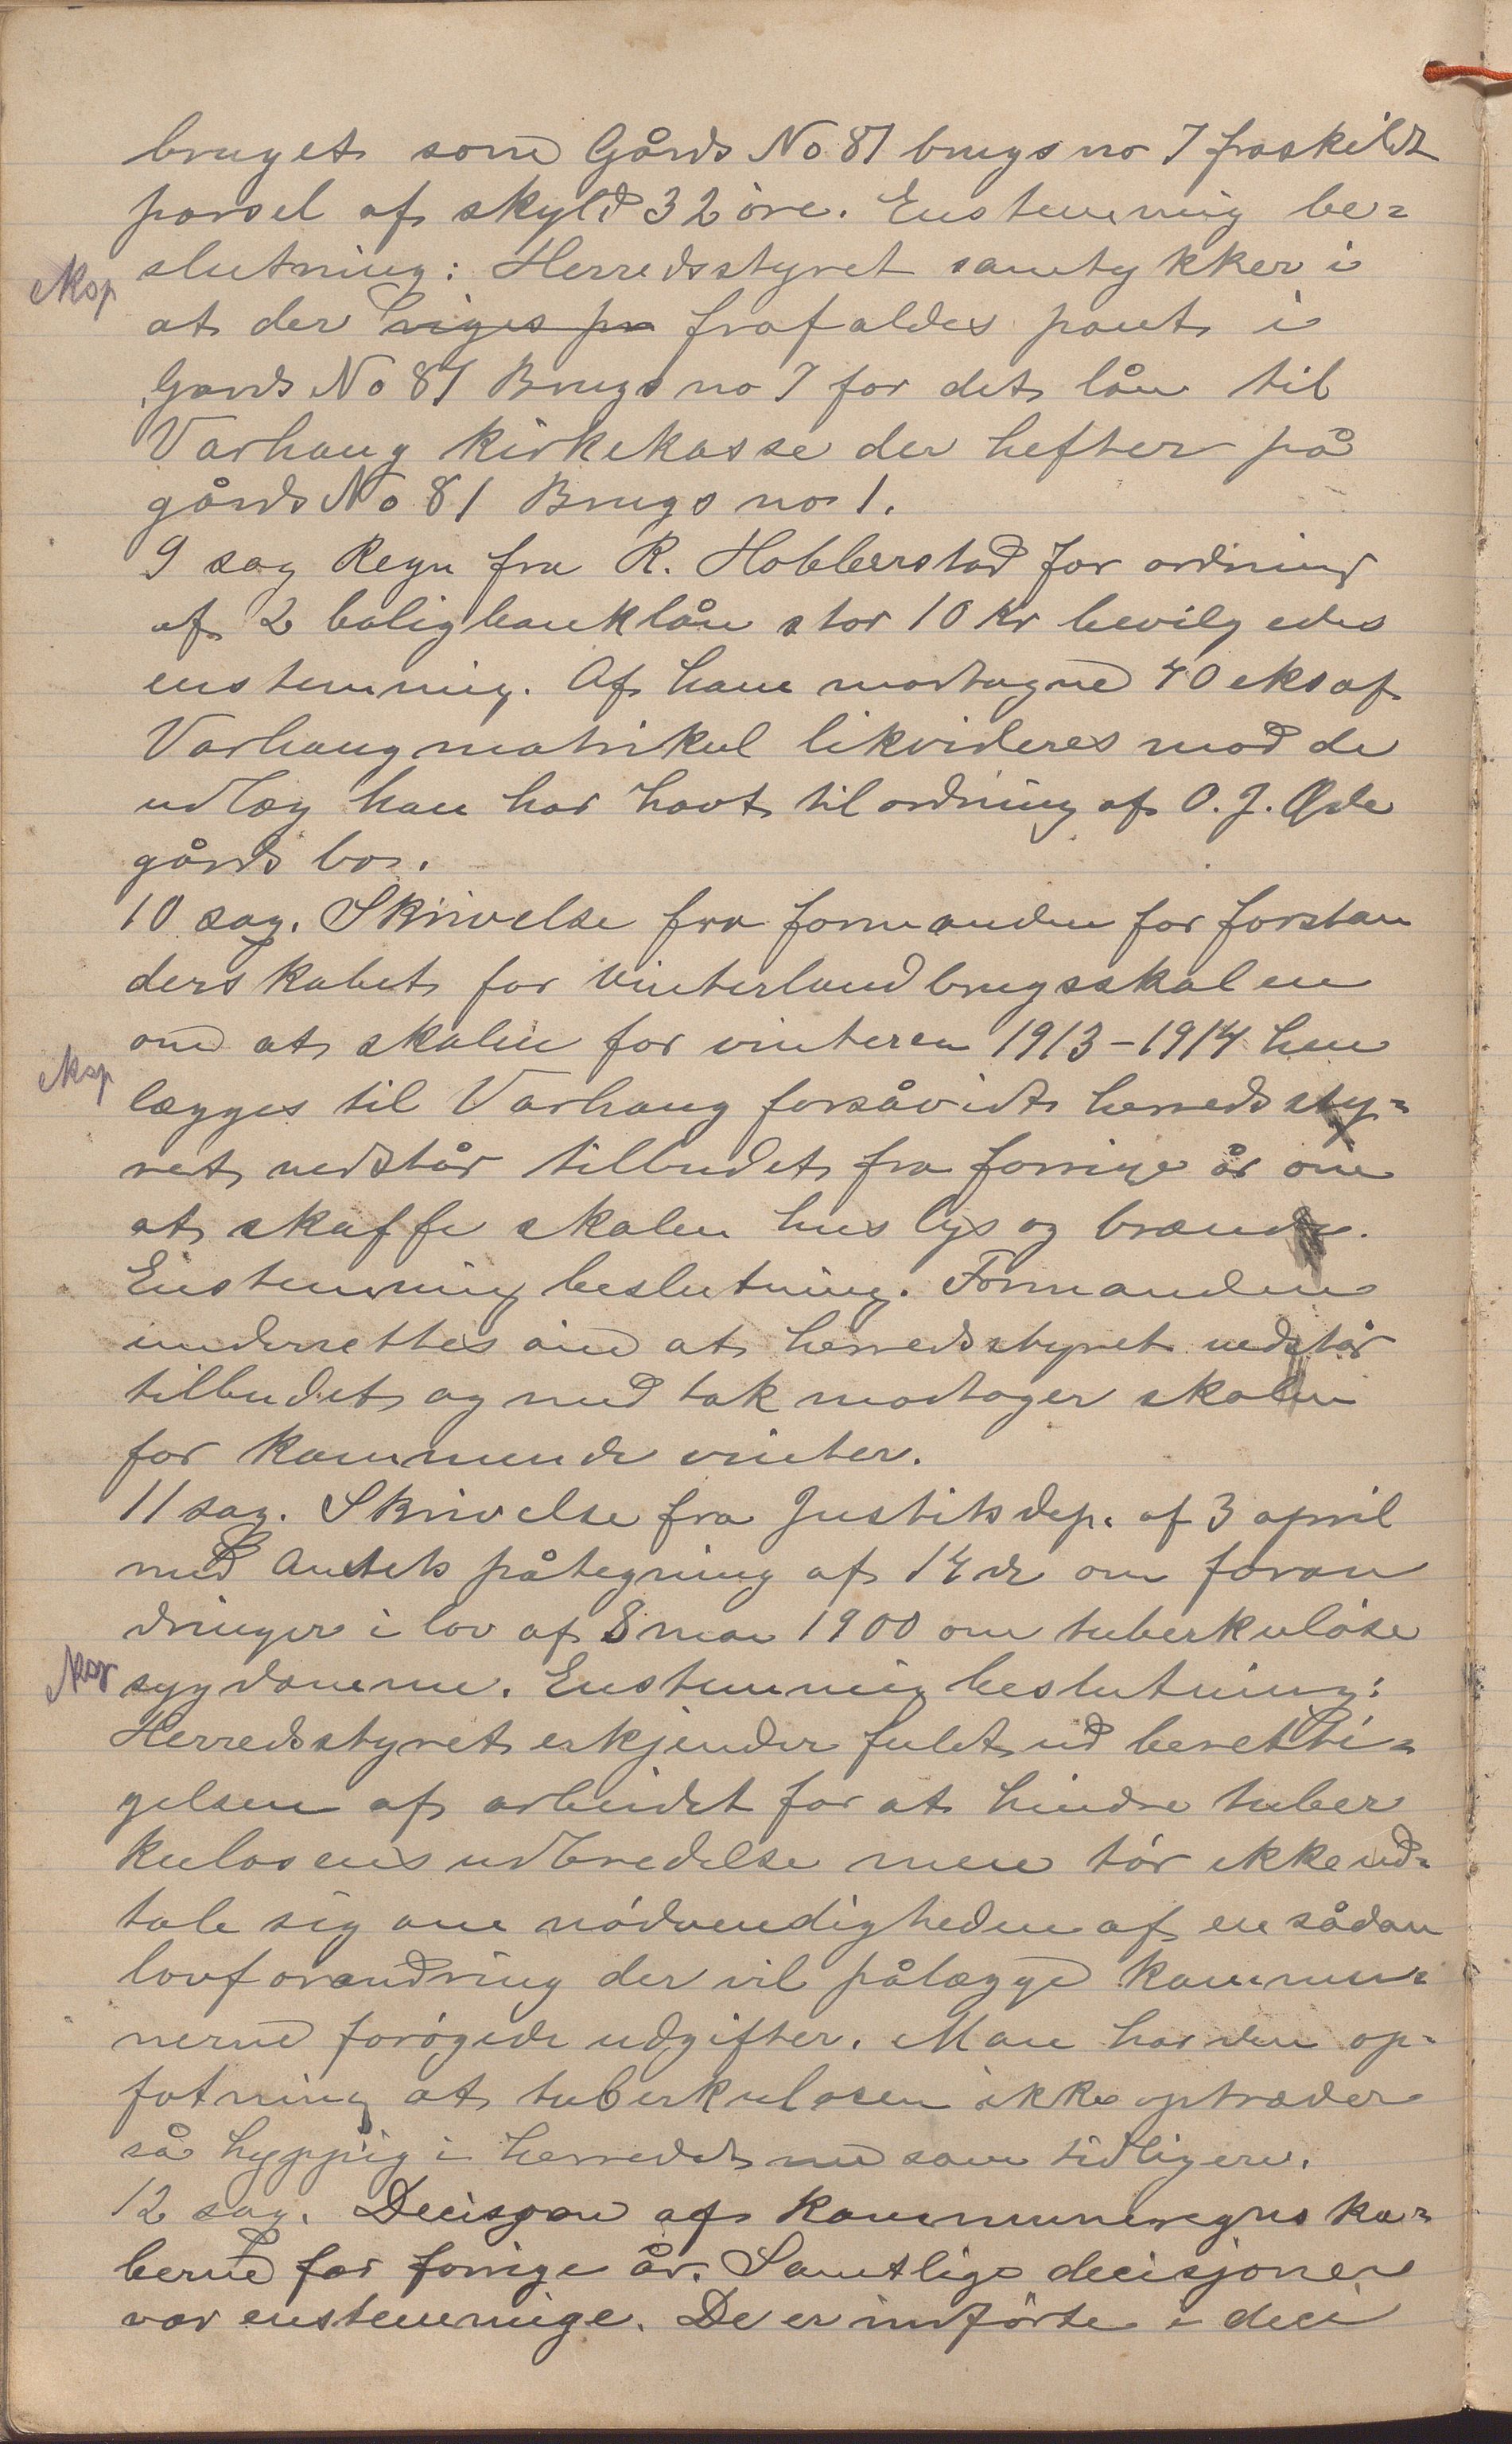 bruget som Gårds No 81 brugs no 7 fraskildt
parsel af skyld 32 öre. Enstemmig be=
eksp slutning: Herredsstyret samtykker i
at der viges pr frafaldes pant i
Gards No 81 Brugs no 7 for det lån til
Varhaug kirkekasse der hefter på
gårds No 81 Brugs no 1.
9 sag Regn fra R. Hobberstad for ordning
af 2 boligbanklån stor 10 Kr bevilgedes
enstemmig. Af ham modtagne 40 eks af
Varhaug matrikul likvideres mod de
udlæg han har havt til ordning af O. J. Øde
gårds bo.
10 sag. Skrivelse fra formanden for forstan
derskabet for vinterlandbrugsskolen
om at skolen for vinteren 1913-1914 hen
eksp
lægges til Varhaug forsåvidt herredssty=
ret vedstår tilbudet fra forrige år om
at skaffe skolen hus lys og brænde.
Enstemmig beslutning. Formanden
underrettes om at herredsstyret vedstår
tilbudet og med tak modtager skolen
for kommende vinter.
11 sag. Skrivelse fra Justitsdep. af 3 april
med Amtets påtegning af 14 de om foran
dringer i lov af 8 mai 1900 om tuberkuløse
eksp sygdomme. Enstemmig beslutning:
Herredsstyret erkjender fuldt ud beretti=
gelsen af arbeidet for at hindre tuber
kulosens udbredelse men tör ikke ud=
tale sig om nödvendigheden af en sådan
lovforandring der vil pålægge kommu=
nerne forögede udgifter. Man har den op=
fatning at tuberkulosen ikke optræder
så hyppig i herredet nu som tidligere.
12 sag. Decisjon af kommuneregnska=
berne for forrige år. Samtlige decisjoner
var enstemmige. De er indförte i deci